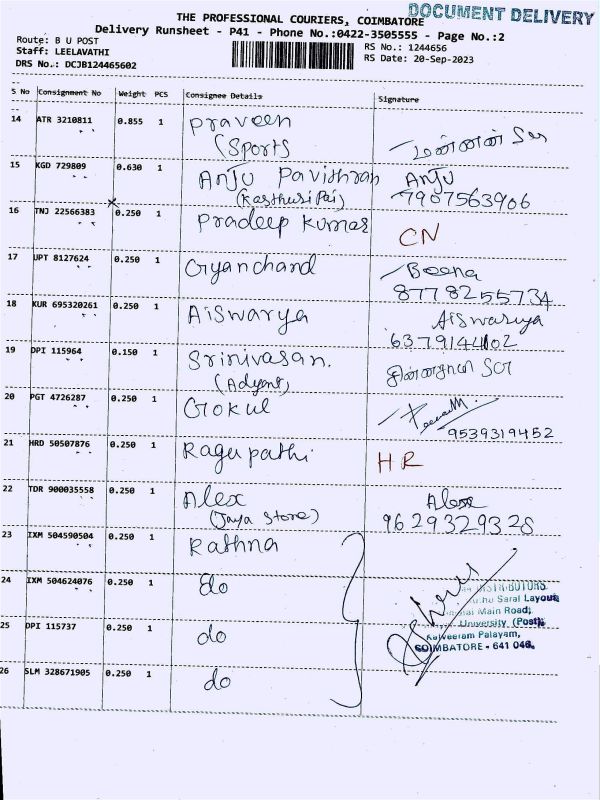 DOCUMENT DELIVERY
THE PROFESSIONAL COURIERS, COIMBATORE
Delivery Runsheet - P41 - Phone No.:0422-3505555 - Page No.:2
Route: B U POST
Staff: LEELAVATHI
DRS No.: DCJB124465602
RS No.: 1244656
RS Date: 20-Sep-2023
S No Consignment No Weight PCS Consignee Details Signature
14 ATR 3210811 0.855 1 Praveen
(Sports
மன்னன் Ser
15 KGD 729809 0.630 1 Anju Pavithran Anju
(Kasthuri Pai) 7907563906
16 TNJ 22566383 0.250 1 Pradeep Kumar CN
17 UPT 8127624 0.250 1 Gyanchand Beena
8778255734
18 KUR 695320261 0.250 1 Aiswarya Aiswarya
6379144102
19 DPI 115964 0.150 1 Srinivasan.
(Adyent)
20 PGT 4726287 0.250 1 Gokul
9539319452
21 HRD 50507876 0.250 1 Ragupathi HR
22 TDR 900035558 0.250 1 Alex Alex
(Jaya Store) 9629329328
23 IXM 504590504 0.250 1 Rathna
24 IXM 504624076 0.250 1 do
25 DPI 115737 0.250 1 do
26 SLM 328671905 0.250 1 do
Saral Layout
Main Road,
University (Post),
Kalveeram Palayam,
COIMBATORE - 641 046.